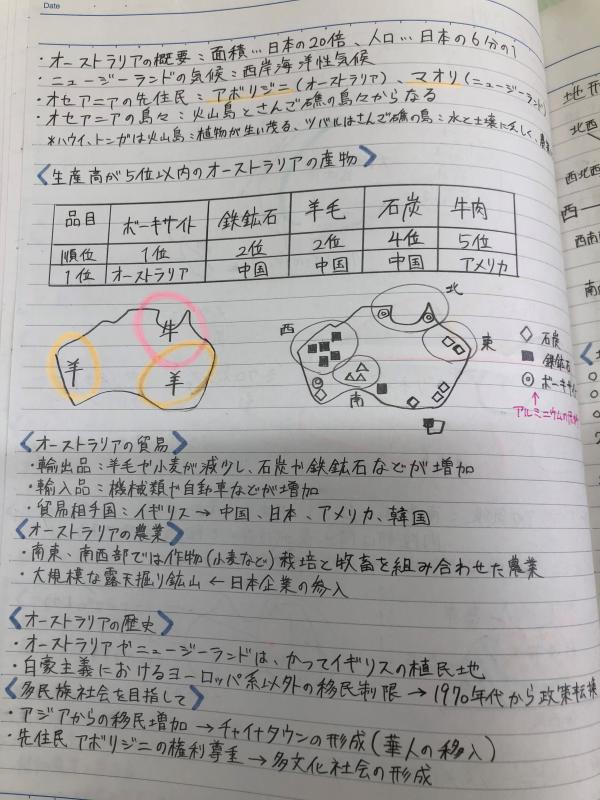 Date
・オーストラリアの概要：面積…日本の20倍、人口…日本の6分の1
・ニュージーランドの気候：西岸海洋性気候
・オセアニアの先住民：アボリジニ(オーストラリア)、マオリ(ニュージーランド)
・オセアニアの島々：火山島とさんご礁の島々からなる
*ハワイ、トンガは火山島：植物が生い茂る、ツバルはさんご礁の島：水と土壌に乏しく、農業
〈生産高が5位以内のオーストラリアの産物〉
品目 ボーキサイト 鉄鉱石 羊毛 石炭 牛肉
順位 1位 2位 2位 4位 5位
1位 オーストラリア 中国 中国 中国 アメリカ
牛
羊 羊
北
西 東
南
石炭
鉄鉱石
ボーキサイト
アルミニウムの
〈オーストラリアの貿易〉
・輸出品：羊毛や小麦が減少し、石炭や鉄鉱石などが増加
・輸入品：機械類や自動車などが増加
・貿易相手国：イギリス→中国、日本、アメリカ、韓国
〈オーストラリアの農業〉
・南東、南西部では作物(小麦など)栽培と牧畜を組み合わせた農業
・大規模な露天掘り鉱山←日本企業の参入
〈オーストラリアの歴史〉
・オーストラリアやニュージーランドは、かつてイギリスの植民地
・白豪主義におけるヨーロッパ系以外の移民制限→1970年代から政策転換
〈多民族社会を目指して〉
・アジアからの移民増加→チャイナタウンの形成(華人の移入)
・先住民アボリジニの権利尊重→多文化社会の形成
地形
北西
西北西
西
西南
南